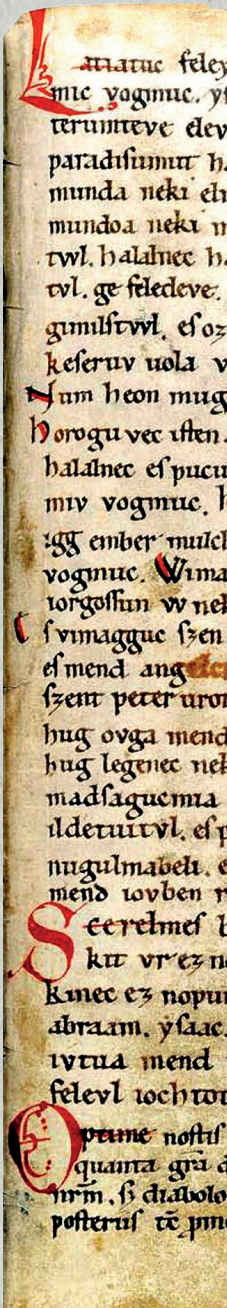 Latiatuc feley
mic vogmuc. yſ
terumteve elev
paradiſumut h
munda neki el
mundoa neki m
twl. halalnec h
tvl. ge feledeve.
gimilſtwl. eſ oz
keſeruv uola v
Num heon mug
horogu vec iſten.
halalnec eſ pucu
miv vogmuc.
igg ember mulch
vogmuc. Wima
iorgoſſun w nek
ſ vimagguc ſzen
eſ mend angelcu
ſzent peter uro
hug ovga mend
hug legenec nek
madſagucmia
ildetuitvl. eſ p
nugulmabeli. e
mend iovben
Scerelmeſ b
kit vr ez n
kinec ez nopun
abraam. yſaac.
ivtua mend
felevl iochto
Optime noſtiſ
quanta grã
nrm̃. ſ; diabolo
poſteruſ tẽ